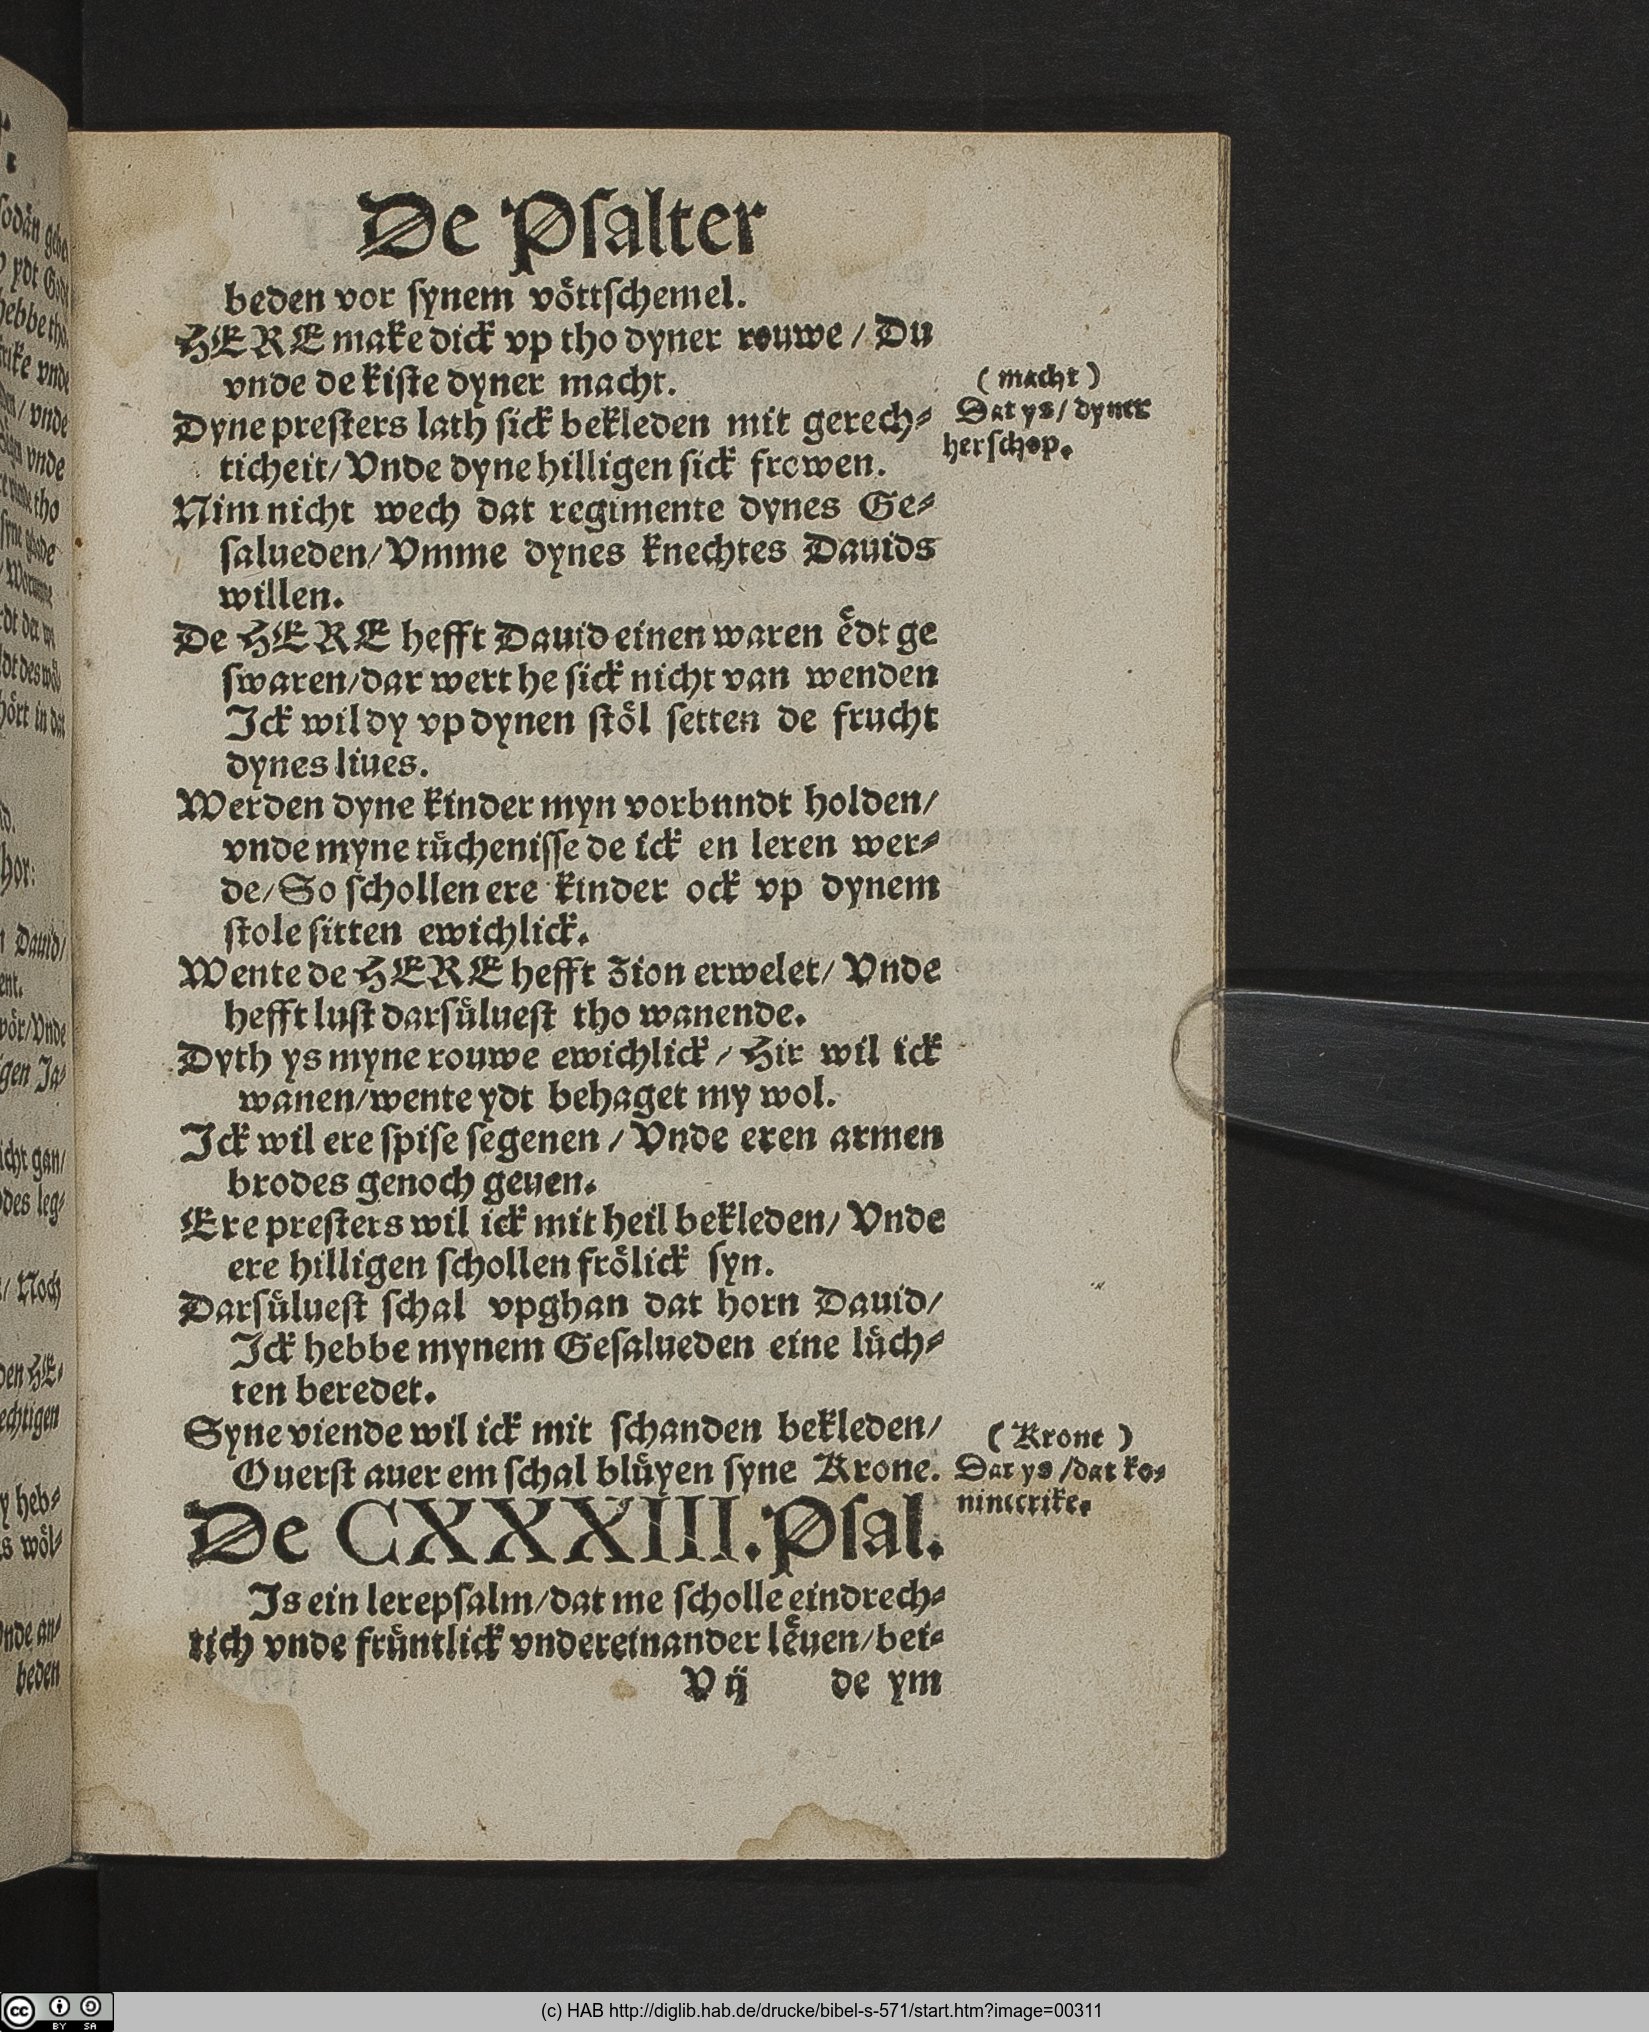 De Psalter
beden vor synem voͤttschemel.
HERE make dick vp tho dyner rouwe / Du
vnde de kiste dyner macht.
Dyne presters lath sick bekleden mit gerech⸗
ticheit/ Vnde dyne hilligen sick frowen.
Nim nicht wech dat regimente dynes Ge⸗
salueden/ Vmme dynes knechtes Dauids
willen.
De HERE hefft Dauid einen waren eͤdt ge
swaren/dar wert he sick nicht van wenden
Ick wil dy vp dynen stoͤl setten de frucht
dynes liues.
Werden dyne kinder myn vorbnndt holden/
vnde myne tuͤchenisse de ick en leren wer⸗
de/ So schollen ere kinder ock vp dynem
stole sitten ewichlick.
Wente de HERE hefft Zion erwelet/ Vnde
hefft lust darsuͤluest tho wanende.
Dyth ys myne rouwe ewichlick / Hir wil ick
wanen/wente ydt behaget my wol.
Ick wil ere spise segenen / Vnde eren armen
brodes genoch geuen.
Ere presters wil ick mit heil bekleden/ Vnde
ere hilligen schollen froͤlick syn.
Darsuͤluest schal vpghan dat horn Dauid/
Ick hebbe mynem Gesalueden eine luͤch⸗
ten beredet.
Syne viende wil ick mit schanden bekleden/
Ouerst auer em schal bluͤyen syne Krone.
De CXXXIII. Psal.
Is ein lerepsalm/dat me scholle eindrech⸗
tich vnde fruͤntlick vndereinander leͤuen/bei⸗
V ij de ym
( macht )
Dat ys/ dyner
herschop.
( Krone )
Dat ys /dat ko⸗
nincrike.
(c) HAB http://diglib.hab.de/drucke/bibel-s-571/start.htm?image=00311
cc BY SA